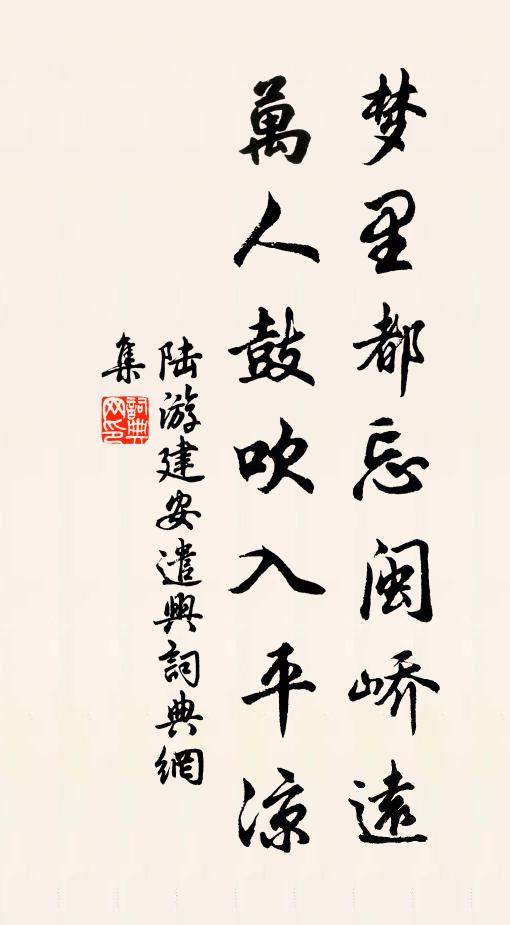 梦里都忘闽峤遠
萬人鼓吹入平凉
陆游建安遣興詞典網
集
詞典网印